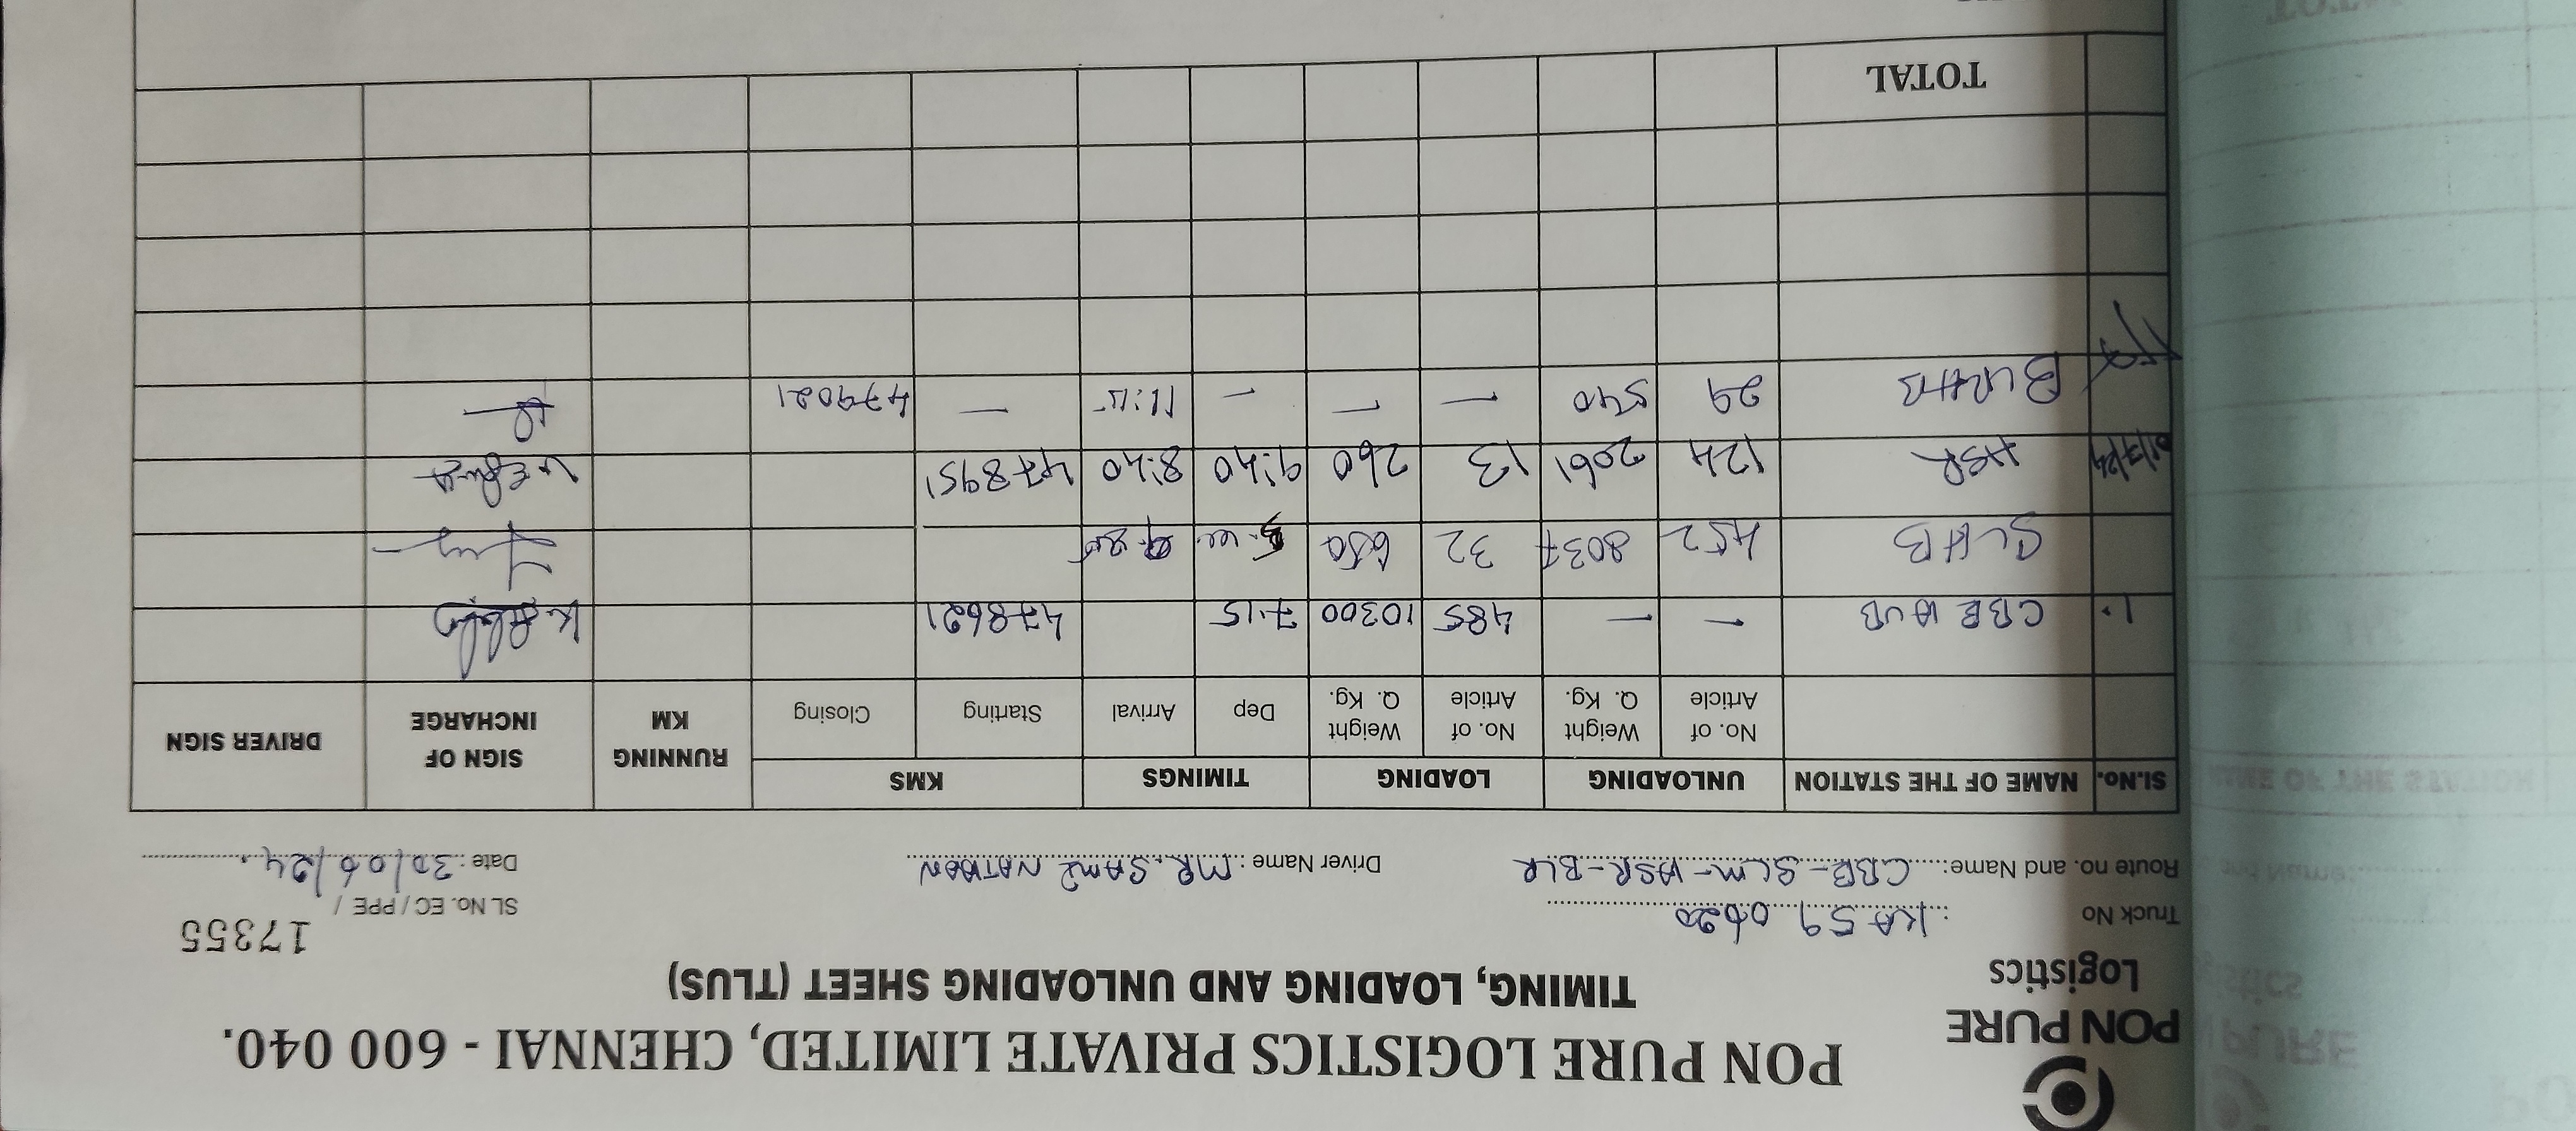 PON PURE
Logistics
PON PURE LOGISTICS PRIVATE LIMITED, CHENNAI - 600 040.
TIMING, LOADING AND UNLOADING SHEET (TLUS)
17355
Truck No : KA 59 0620
SL No. EC / PPE /
Route no. and Name: CBE-SLM-HSR-BLR Driver Name : MR. SAMI NATHAN Date : 30/06/24
Sl.No. NAME OF THE STATION UNLOADING LOADING TIMINGS KMS RUNNING KM SIGN OF INCHARGE DRIVER SIGN
No. of Article Weight Q. Kg. No. of Article Weight Q. Kg. Dep Arrival Starting Closing
1. CBE HUB — — 485 10300 7:15 478621
SLHB 452 8037 32 650
HSR 124 2061 13 260 9:40 8:40 478951
BLRHB 29 540 — — — 11:15 — 479021
TOTAL